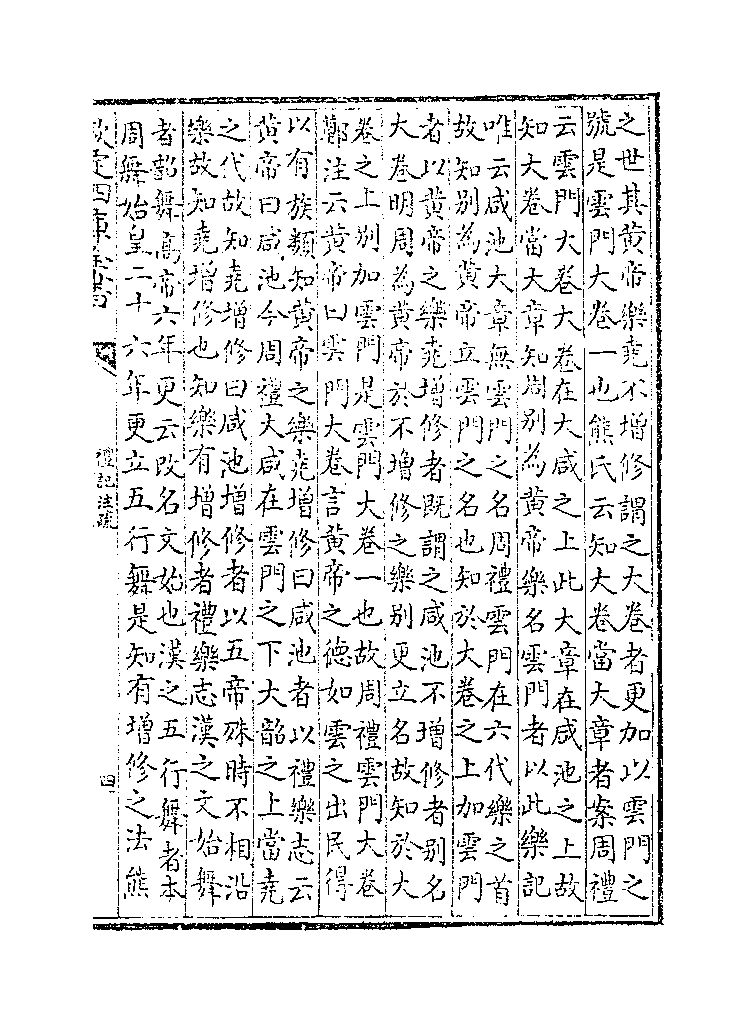 之世其黄帝樂堯不增修謂之大卷者更加以雲門之
號是雲門大卷一也熊氏云知大卷當大章者案周禮
云雲門大卷大卷在大咸之上此大章在咸池之上故
知大卷當大章知周别為黄帝樂名雲門者以此樂記
唯云咸池大章無雲門之名周禮雲門在六代樂之首
故知别為黄帝立雲門之名也知於大卷之上加雲門
者以黄帝之樂堯增修者既謂之咸池不增修者别名
大卷明周為黄帝於不增修之樂别更立名故知於大
卷之上别加雲門是雲門大卷一也故周禮雲門大卷
鄭注云黄帝曰雲門大卷言黄帝之德如雲之出民得
以有族類知黄帝之樂堯增修曰咸池者以禮樂志云
黄帝曰咸池今周禮大咸在雲門之下大韶之上當堯
之代故知堯增修曰咸池增修者以五帝殊時不相沿
樂故知堯增修也知樂有增修者禮樂志漢之文始舞
者韶舞高帝六年更云改名文始也漢之五行舞者本
周舞始皇二十六年更立五行舞是知有增修之法熊
欽定四庫全書
禮記注疏
四